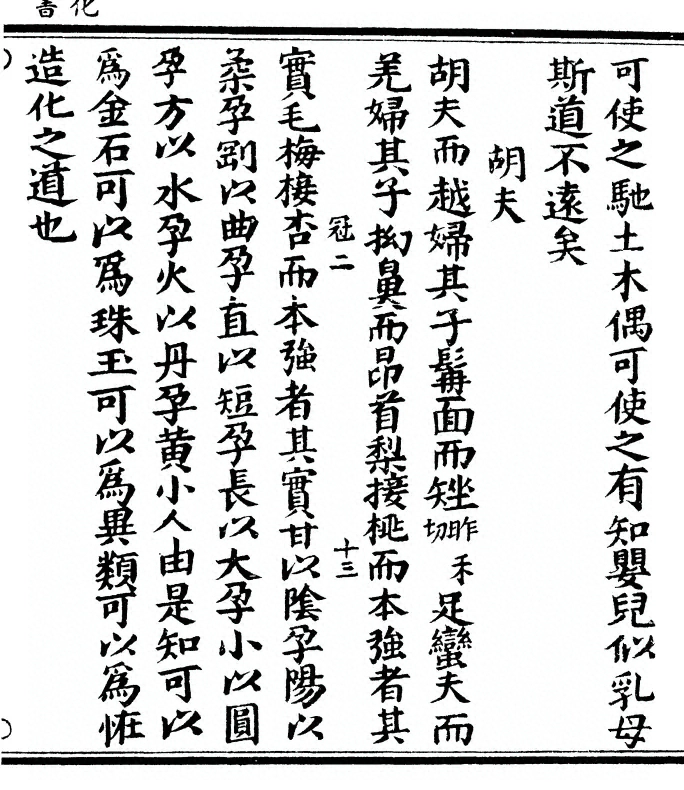 化書
可使之馳土木偶可使之有知嬰兒似乳母
斯道不遠矣
胡夫
胡夫而越婦其子髯面而矬昨禾切足蠻夫而
羌婦其子拗鼻而昂首梨接桃而本強者其
冠二
十三
實毛梅接杏而本強者其實甘以陰孕陽以
柔孕剛以曲孕直以短孕長以大孕小以圓
孕方以水孕火以丹孕黃小人由是知可以
爲金石可以爲珠玉可以爲異類可以爲恠
造化之道也